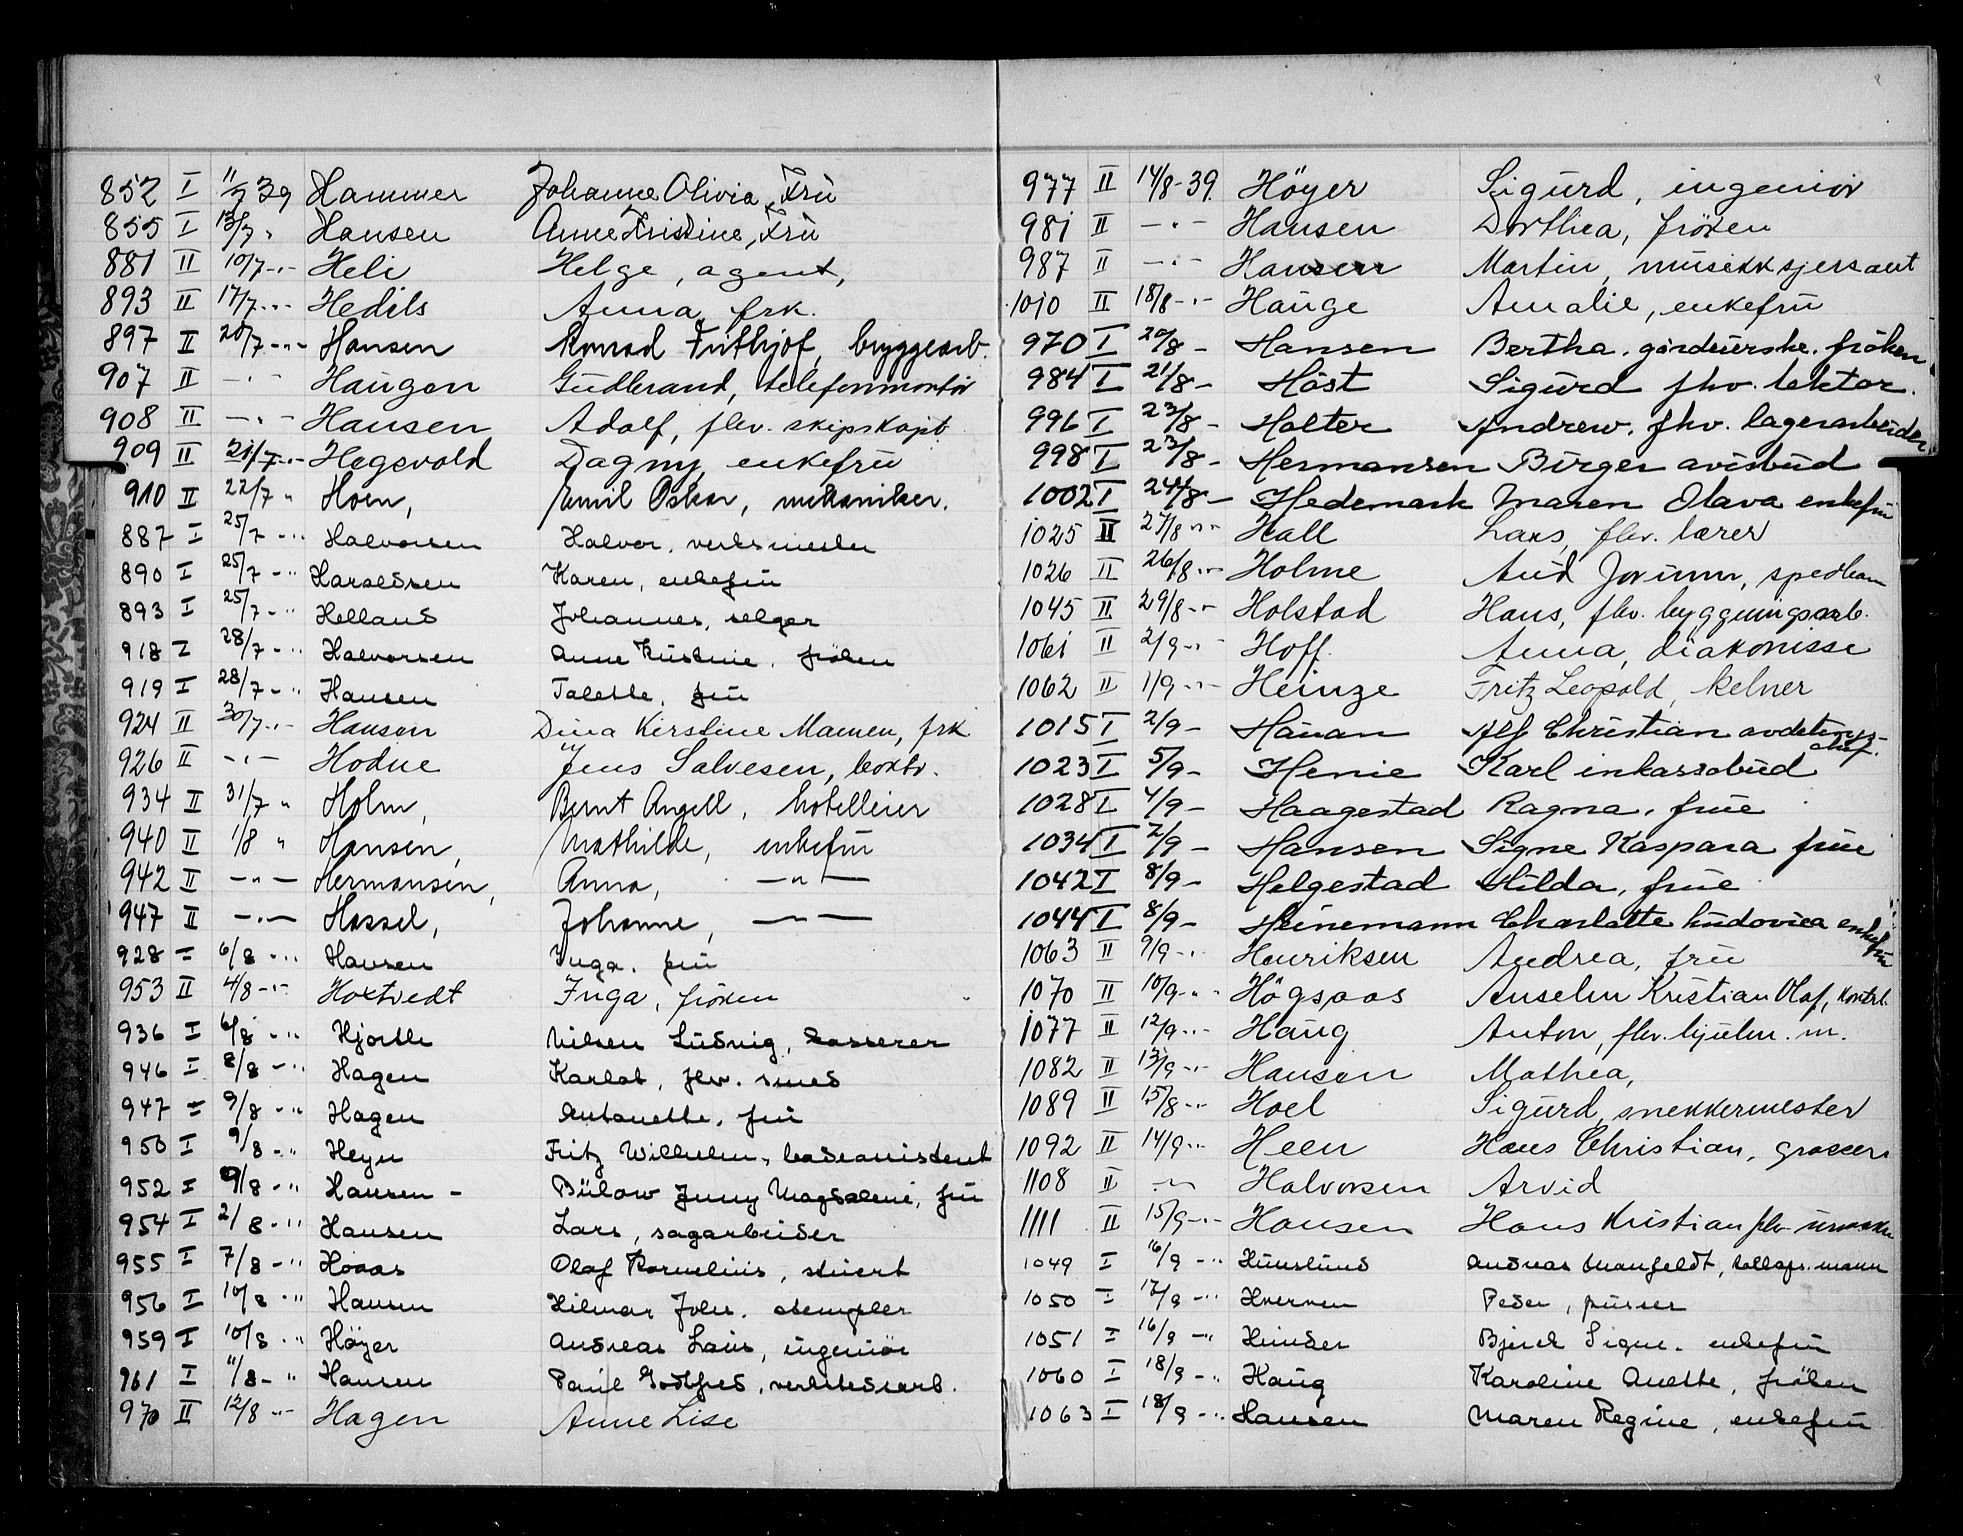 852 I 11/7 39 Hammer Johanne Olivia, Fru
855 I 13/7 " Hansen Anne Kristine, Fru
881 II 10/7 -"- Heli Helge, agent,
893 II 17/7 -"- Hedils Anna, frk.
897 II 20/7 -"- Hansen Konrad Frithjof, bryggearb.
907 II -"- Haugen Gudbrand, telefonmontör
908 II -"- Hansen Adolf, fhv. skipskapt.
909 II 21/7 -"- Hegevold Dagny, enkefru
910 II 22/7 " Hoen, Emil Oskar, mekaniker.
887 I 25/7 -" Halvorsen Halvor, verksmester
890 I 25/7 -" Haraldsen Karen, enkefru
893 I 25/7 -" Helland Johannes, selger
918 I 28/7 -" Halvorsen Anne Kristine, fröken
919 I 28/7 -" Hansen Talette, fru
924 II 30/7 -"- Hansen Dina Kirstine Mamen, frk
926 II -"- Hodne Jens Salvesen, boktr.
934 II 31/7 " Holm, Bernt Angell, hotelleier
940 II 1/8 " Hansen, Mathilde, enkefru
942 II -"- Hermansen, Anna, -"-
947 II -"- Hassel, Johanne, -"-
928 I 6/8 -" Hansen Inga, fru
953 II 4/8 -"- Hoxtvedt Inga, fröken
936 I 6/8 -" Hjorth Nilsen Ludvig, kasserer
946 I 8/8 -" Hagen Karlot, fhv. smed
947 I 9/8 -" Hagen Antonette, fru
950 I 9/8 -" Heyn Fritz Wilhelm, badeassistent
952 I 9/8 -" Hansen - Bülow Jenny Magdalene, fru
954 I 2/8 -" Hansen Lars, sagarbeider
955 I 7/8 -" Hoaas Olaf Kornelius, stuert
956 I 10/8 -" Hansen Hilmar Johs. stempler
959 I 10/8 -" Höyer Andreas Laus, ingeniör
961 I 11/8 - " Hansen Paul Godtfred, verkstedsarb.
970 II 12/8 -"- Hagen Anne Lise
977 II 14/8-39. Höyer Sigurd, ingeniör
981 II -"- Hansen Dorthea, fröken
987 II -"- Hansen Martin, musikksjersant
1010 II 18/8 -"- Hauge Amalie, enkefru
970 I 20/8 - Hansen Bertha. gårdeierske. fröken
984 I 21/8 - Höst Sigurd fhv. lektor.
996 I 23/8 - Holter Andrew. fhv. lagerarbeider
998 I 23/8 - Hermansen Birger avisbud
1002 I 24/8 - Hedemark Maren Olava enkefru
1025 II 27/8 -"- Hall Lars, fhv. lærer
1026 II 26/8 -"- Holme Aud Jorunn, spedbarn
1045 II 29/8 -"- Holstad Hans, fhv. bygningsarb.
1061 II 2/9 -"- Hoff. Anna, diakonisse
1062 II 1/9 -"- Heinze Fritz Leopold, kelner
1015 I 2/9 - Hauan Alf Christian avdelings-
chef.
1023 I 5/9 - Henie Karl inkassobud
1028 I 4/9 - Haagestad Ragna, frue
1034 I 2/9 - Hansen Signe Kaspara frue
1042 I 8/9 - Helgestad Hilda, frue
1044 I 8/9 - Heinemann Charlotte Ludovica enkefru
1063 II 9/9 -"- Henriksen Andrea, fru
1070 II 10/9 -"- Högsaas Anselm Kristian Olaf, kontrl.
1077 II 12/9 -"- Haug Anton, fhv. hjulm. m.
1082 II 13/9 -"- Hansen Mathea,
1089 II 15/8 -"- Hoel Sigurd snekkermester
1092 II 14/9 -"- Heen Hans Christian, grosserer
1108 II -"- Halvorsen Arvid
1111 II 15/9 -"- Hansen Hans Kristian fhv. urmaker
1049 I 16/9 -" Hunslund Andreas Manfeldt,
1050 I 17/9 -" Hverven Peder, pusser
1051 I 16/9 -" Hinder Signe. enkefru
1060 I 18/9 -" Haug Karoline Anette, fröken
1063 I 18/9 -" Hansen Maren Regine, enkefru